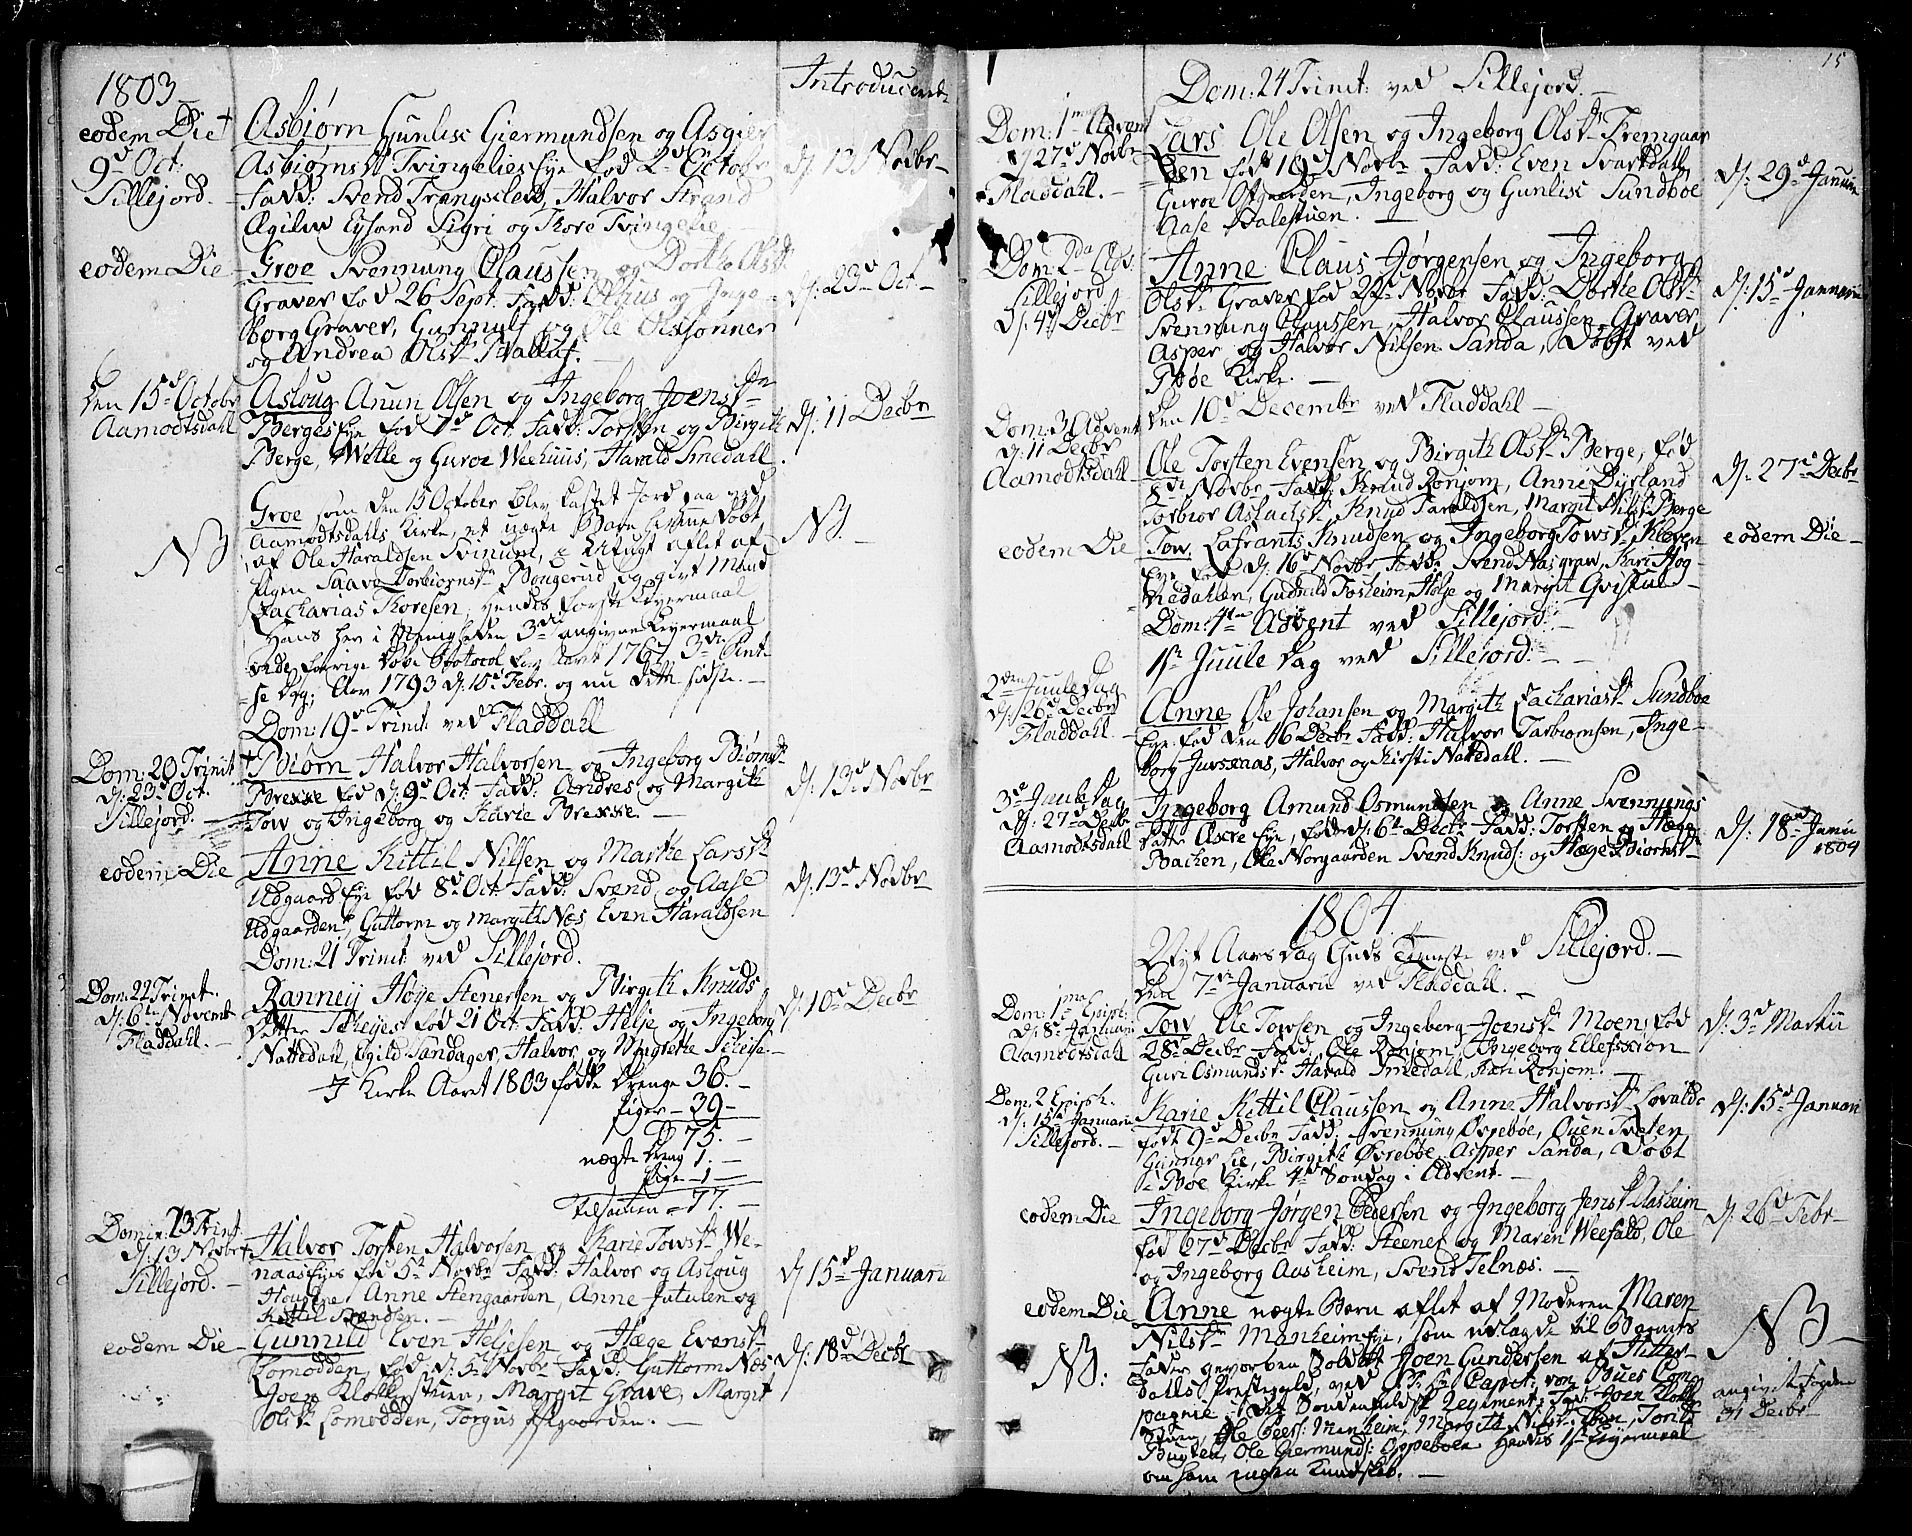 1803
Introducerte
eodem Die
9de Oct.
Sillejord.
Asbiørn Gunlix Giermundsen og Asgier
Asbiørnsdt Tvingelies Eye fød 2de Octobr
Fadd: Svend Trængsleid, Halvor Strand
Ægilen Eysond Sigri og Thore Tvingelie
d: 13 Novbr
eodem Die
Groe Svennung Claussen og Dorthe Olsdt
Graver fød 26 Sept. Fadd: Claus og Inge-
borg Graver, Gunnulf og Ole Olssønner
og Andrea Olsdt Ballut.
d: 23de Oct.
Den 15de Octobr
Aamodtsdahl
Asloug Anun Olsen og Ingeborg Joensdtr
Berges Eye fød 1de Oct. Fadd: Torsten og Birgith
Berge, Wetle og Guroe Weehuus, Harald Smedahl
d: 11 Decbr
NB
Groe som den 15 October blev kastet Jord paa ved
Aamodtsdahls Kirke, et uægte Barn hiemme døbt
af Ole Haraldsen Svinum, er avlet af
Pigen Saave Torbiørnsdtr Bongerud og givt Mand
Zacharias Thoresen, hendes første Leyermaal
Hans her i Menigheden 3die angivne Leyermaal
vide forrige Døbe Protocol for Aaret 1767 3de Pint-
se Dag; Aar 1793 d: 15de Febr. og nu dette sidste.
NB.
Dom: 19de Trinit: ved Fladdahl
Dom: 20 Trinit
d: 23de Oct.
Sillejord.
Biørn Halvor Halvorsen og Ingeborg Biørnsdtr
Brekke fød d: 9de Oct: Fadd: Andres og Margith
Tow og Ingeborg og Karie Brekke.
d: 13de Novbr
eodem Die
Anne Kittil Nilsen og Marthe Larsdtr
Udgaard Eye fød 8de Oct. Fadd: Svend og Aase
Udgaarden, Guttorm og Margith Næs Even Haraldsen
d: 13de Novbr
Dom: 21 Trinit: ved Sillejord.
Dom: 22 Trinit.
d: 6te Novemb
Fladdahl.
Ranneÿ Høye Stenersen og Birgith Knuds
Datter Skeÿes fød 21 Oct: Fadd: Helje og Ingeborg
Nattedahl, Egild Sandager, Halvor og Margrethe Skeÿe
d: 10de Decbr
I Kirke Aaret 1803 fødte Drenge 36.
Piger 39
75.
uægte Dreng 1.
Pige 1
tilsamen 77.
Domin: 23 Trint.
d: 13 Novbr
Sillejord.
Halvor Torsten Halvorsen og Karie Towsdt We-
naas Eyes fød 5te Novbr Fadd: Halvor og Asloug
Anne Stengaarden, Anne Jutulen og
Kittil Svendsen.
d: 15de Januarii
eodem Die
Gunnild Even Heljesen og Hæge Evensdt
Lomodden, fød d: 5te Novbr Fadd: Guttorm Næs
Joen Klokkerstuen, Margit Grave, Margit
Olsdt Lomodden, Torgus
d: 18de Decbr
15
Dom: 24 Trinit: ved Sillejord.
Dom: 1ma Advent
d: 27de Novbr
Fladdahl.
Lars Ole Olsen og Ingeborg Olsdtr Fremgaar
den fød 16de Novbr Fadd: Even Svartdahl
Guroe Ofgaarden, Ingeborg og Gunlix Sundboe
Aase
d: 29de Januarii
Dom: 2da Adv.
Sillejord
d: 4de Decbr
Anne Claus Jørgensen og Ingeborg
Olsdtr Graver fød 22de Novbr Fadd: Dorthe Olsdtr
Svennung Claussen, Halvor Claussen Graver
Asper og Halvor Nilsen Sanda, døbt ved
Bøe Kirke.
d: 15de Januarii
den 10de Decembr ved Fladdahl
Dom: 3 Advent
d: 11 Decbr
Aamodtsdahl
Ole Torsten Evensen og Birgith Olsdtr Berge, fød
8de Novbr Fadd: Knud Ronjom, Anne Dyrland
Torbior Aslachsdt Knud Taraldsen, Margit Nilsdt Berge
d: 27de Decbr
eodem Die
Tow. Lafrants Knudsen og Ingeborg Towsdtr Kleven
Eye fød d: 16de Novbr Fadd: Svend Næsgrav, Kari Høg-
nedalen, Gudnild Fosheim, Høye og Margit Qvistad
eodem Die
Dom: 4ta Advent ved Sillejord.
1ste Juule Dag ved Sillejord.
2den Juule Dag
d: 26de Decbr
Fladdahl.
Anne Ole Johansen og Margith Zachariasdtr Sundboe
Eye fød den 16 Decbr Fadd: Halvor Tarbiornsen, Inge-
borg Juvsnaas, Halvor og Kirsti Nattedahl.
3de Juule Dag
d: 27de Decbr
Aamodtsdahl
Ingeborg Amund Osmundsen og Anne Svennungs
datter Aase Eye, fød d: 6te Decbr Fadd: Torsten og Hæge
Bachen, Ole Norgaarden Svend Knuds: og Hæge Biornsdt
d: 18de Januarii
1804
1804
Nyt Aars Dag Guds Tieneste ved Sillejord.
den 7de Januarii ved Fladdahl.
Dom: 1ma Epiph:
d: 8de Januarii
Aamodtsdahl
Tow Ole Towsen og Ingeborg Joensdtr Moen, fød
28de Decbr Fadd: Ole Ronjom, Ingeborg Ellefskion
Guri Osmundsdt Harald Smedahl, Kari Ronjom.
d: 3de Martii
Dom: 2 Epiph.
d: 15de Januarii
Sillejord.
Karie Kittil Claussen og Anne Halvorsdtr Lovalds
født 9de Decbr Fadd: Svennung Øvrebøe, Ouen Sveten
Gunner Lie, Birgith Øvrebøe, Asper Sanda, døbt
i Bøe Kirke 4de Søndag i Advent.
d: 15de Januari
eodem Die
Ingeborg Jørgen Pedersen og Ingeborg Jensdt Aasheim
fød 27de Decbr Fadd: Steener og Maren Weefald, Ole
og Ingeborg Aasheim, Svend Telnæs.
d: 26de Febr
eodem Die
NB:
Anne uægte Barn aflet af Moderen Maren
Nilsdtr Manheim Eye, som udlagde til Barnets
Fader geworben Soldat Joen Gundersen af Hitter-
dals Præstegield, ved Capit: von Bues Com-
pagnie i det Søndenfieldske Regiment, Fad: Joen Klokk
stuen, Ole Peers: Manheim, Margith Nilsdt: Tveten, Torild
Bugten, Ole Giermunds: Oppebøen hendes 1ste Leyermaal
om ham ingen Kundskab.
NB
angivet Fogden
31 Decbr